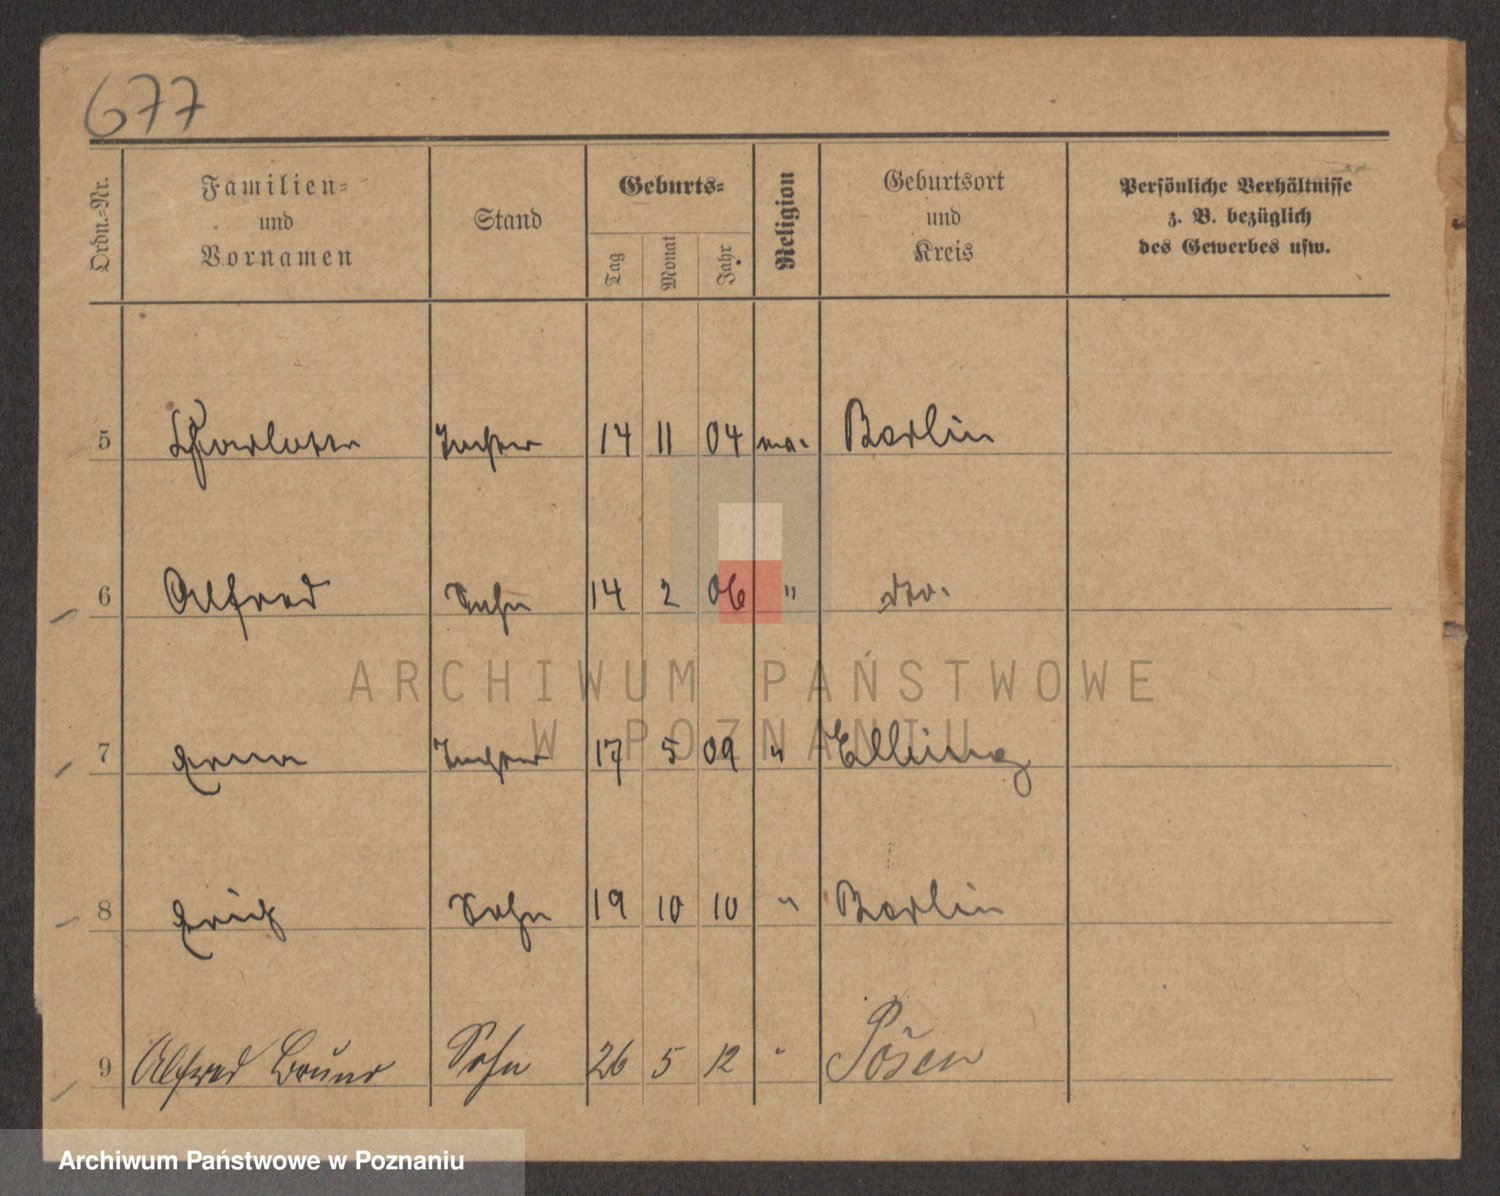 677
Ordn.-Nr.
Familien-
und
Vornamen
Stand
Geburts-
Tag
Monat
Jahr
Religion
Geburtsort
und
Kreis
Persönliche Verhältnisse
z. B. bezüglich
des Gewerbes usw.
5 Charlotte Tochter 14 11 04 Berlin
6 Alfred Sohn 14 2 06 " do.
ARCHIWUM PAŃSTWOWE
W POZNANIU
7 Erna Tochter 17 5 09 " Elbing
8 Erich Sohn 19 10 10 " Berlin
9 Alfred Bruno Sohn 26 5 12 " Posen
Archiwum Państwowe w Poznaniu